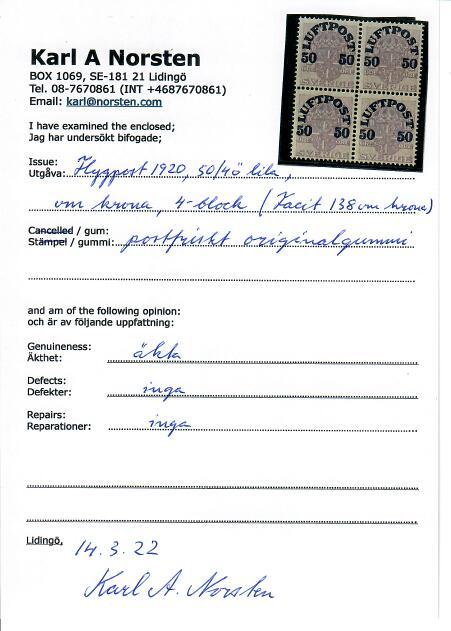 LUFTPOST LUFTPOST
50 50 50 50
LUFTPOST LUFTPOST
50 50 50 50
Karl A Norsten
BOX 1069, SE-181 21 Lidingö
Tel. 08-7670861 (INT +4687670861)
Email: karl@norsten.com
I have examined the enclosed;
Jag har undersökt bifogade;
Issue:
Utgåva: Flygpost 1920, 50/4ö lila,
vm krona, 4-block (Facit 138 vm krona)
Cancelled / gum:
Stämpel / gummi: postfriskt originalgummi
and am of the following opinion:
och är av följande uppfattning:
Genuineness:
Äkthet: äkta
Defects:
Defekter: inga
Repairs:
Reparationer: inga
Lidingö, 14.3.22
Karl A. Norsten